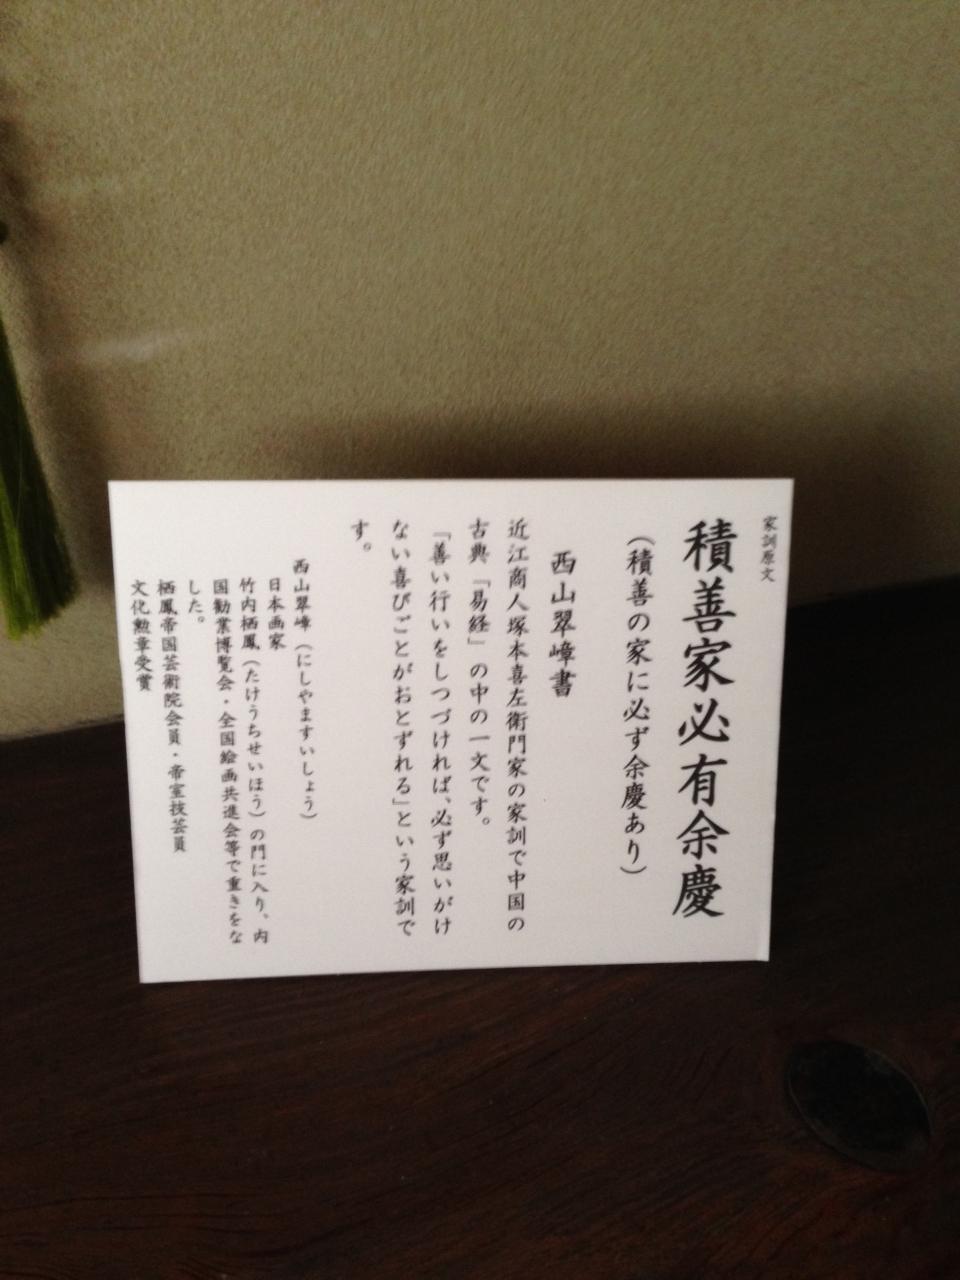 家訓原文
積善家必有余慶
（積善の家に必ず余慶あり）
西山翠嶂書
近江商人塚本喜左衛門家の家訓で中国の
古典「易経」の中の一文です。
「善い行いをしつづければ、必ず思いがけ
ない喜びごとがおとずれる」という家訓で
す。
西山翠嶂（にしやますいしょう）
日本画家
竹内栖鳳（たけうちせいほう）の門に入り、内
国勧業博覧会・全国絵画共進会等で重きをな
した。
栖鳳帝国芸術院会員・帝室技芸員
文化勲章受賞